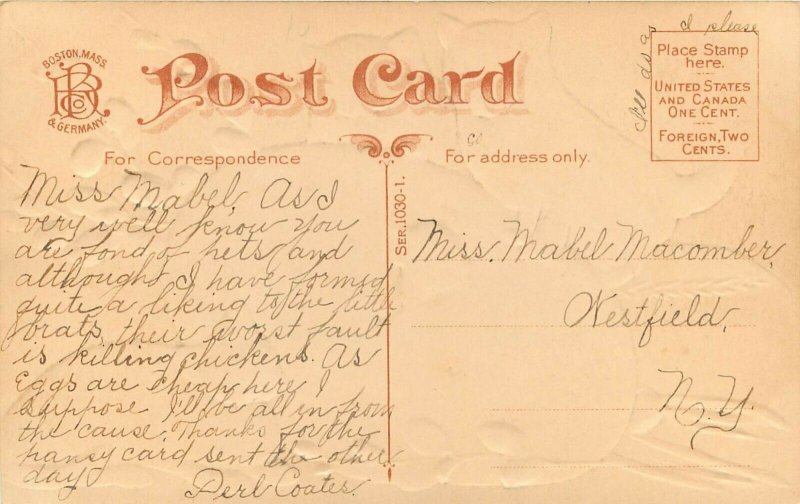 I please
I'll do as
BOSTON, MASS.
BRCo
& GERMANY.
Post Card
Place Stamp
here.
UNITED STATES
AND CANADA
ONE CENT.
FOREIGN, TWO
CENTS.
For Correspondence
For address only.
SER. 1030-1.
Miss Mabel, As I
very well know you
are fond of pets, and
although I have formed
quite a liking to the little
brats, their worst fault
is killing chickens. As
Eggs are cheap here I
suppose I'll be all in from
the cause. Thanks for the
pansy card sent the other
day
Perl Coates.
Miss. Mabel Macomber,
Westfield,
N.Y.